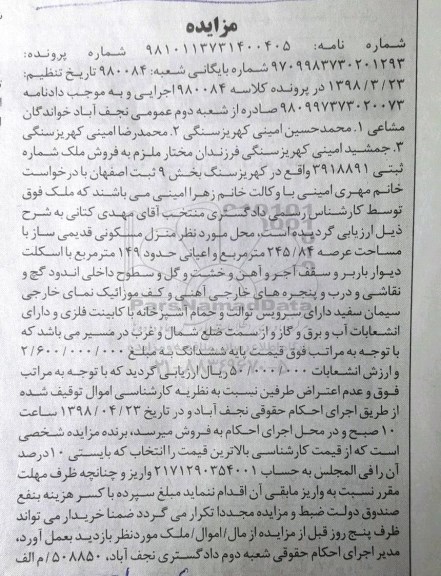 مزایده
شماره نامه: ۹۸۱۰۱۱۳۷۳۱۴۰۰۴۰۵ شماره پرونده:
۹۷۰۹۹۸۳۷۳۰۲۰۱۲۹۳ شماره بایگانی شعبه: ۹۸۰۰۸۴ تاریخ تنظیم:
۱۳۹۸/۳/۲۳ در پرونده کلاسه ۹۸۰۰۸۴ اجرایی و به موجب دادنامه
۹۸۰۹۹۷۳۷۳۰۲۰۰۷۳ صادره از شعبه دوم عمومی نجف آباد خواندگان
مشاعی ۱. محمدحسین امینی کهریزسنگی ۲. محمدرضا امینی کهریزسنگی
۳. جمشید امینی کهریزسنگی فرزندان مختار ملزم به فروش ملک شماره
ثبتی ۳۹۱۸۸۹۱ واقع در کهریزسنگ بخش ۹ ثبت اصفهان با درخواست
خانم مهری امینی با وکالت خانم زهرا امینی می باشند که ملک فوق
توسط کارشناس رسمی دادگستری منتخب آقای مهدی کتانی به شرح
ذیل ارزیابی گردیده است، محل مورد نظر منزل مسکونی قدیمی ساز با
مساحت عرصه ۲۴۵/۸۴ مترمربع و اعیانی حدود ۱۴۹ مترمربع با اسکلت
دیوار باربر و سقف آجر و آهن و خشت و گل و سطوح داخلی اندود گچ و
نقاشی و درب و پنجره های خارجی آهنی و کف موزائیک نمای خارجی
سیمان سفید دارای سرویس توالت و حمام آشپزخانه با کابینت فلزی و دارای
انشعابات آب و برق و گاز و از سمت ضلع شمال و غرب در مسیر می باشد که
با توجه به مراتب فوق قیمت پایه ششدانگ به مبلغ ۲/۶۰۰/۰۰۰/۰۰۰
و ارزش انشعابات ۵۰/۰۰۰/۰۰۰ ریال ارزیابی گردید که با توجه به مراتب
فوق و عدم اعتراض طرفین نسبت به نظریه کارشناسی اموال توقیف شده
از طریق اجرای احکام حقوقی نجف آباد و در تاریخ ۱۳۹۸/۰۴/۲۳ ساعت
۱۰ صبح و در محل اجرای احکام به فروش میرسد، برنده مزایده شخصی
است که از قیمت کارشناسی بالاترین قیمت را انتخاب که بایستی ۱۰درصد
آن را فی المجلس به حساب ۲۱۷۱۲۹۰۳۵۴۰۰۱ واریز و چنانچه ظرف مهلت
مقرر نسبت به واریز مابقی آن اقدام ننماید مبلغ سپرده با کسر هزینه بنفع
صندوق دولت ضبط و مزایده مجددا تکرار می گردد ضمنا خریدار می تواند
ظرف پنج روز قبل از مزایده از مال/اموال/ملک موردنظر بازدید بعمل آورد،
مدیر اجرای احکام حقوقی شعبه دوم دادگستری نجف آباد، ۵۰۸۸۵۰/م الف